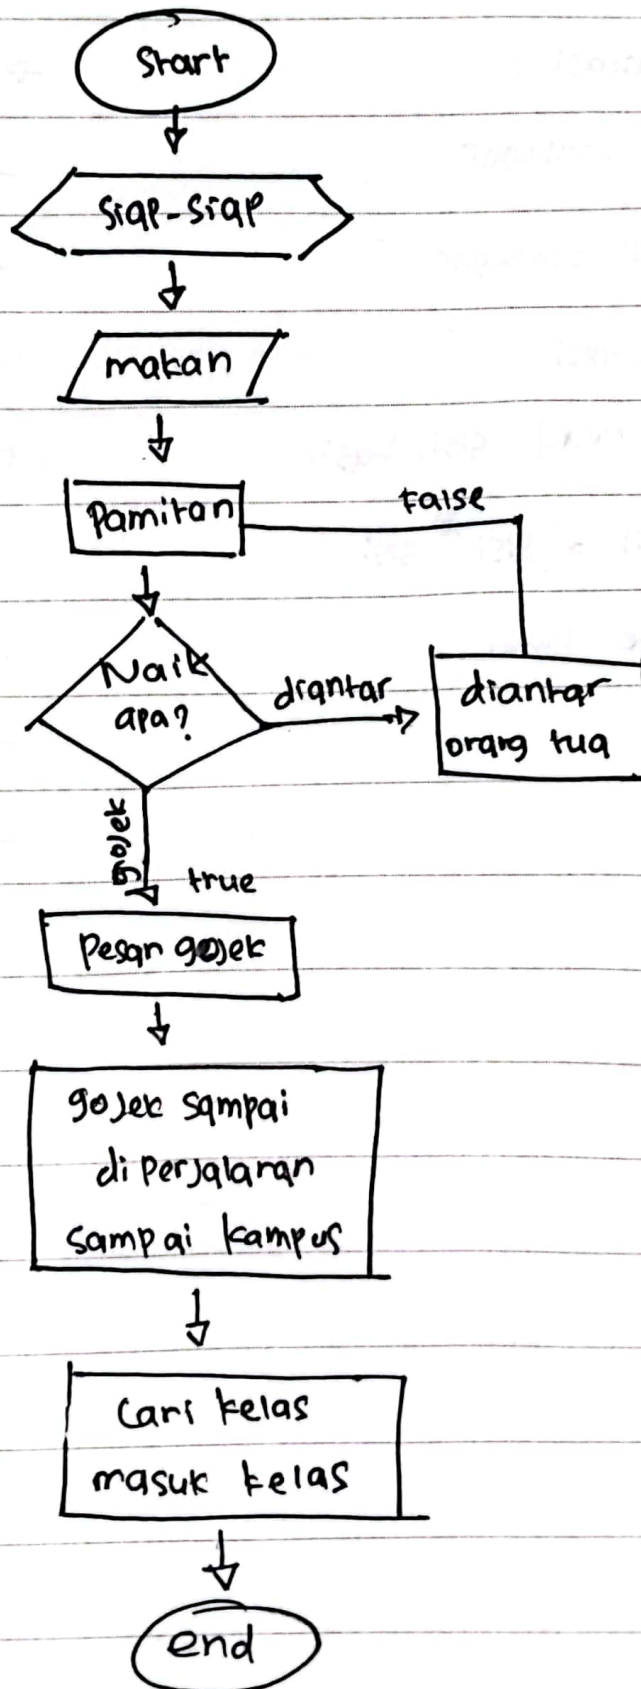 Start
Siap-siap
makan
Pamitan
False
Naik
apa?
diantar
diantar
orang tua
gojek
true
Pesan gojek
gojek sampai
di perjalanan
sampai kampus
Cari kelas
masuk kelas
end